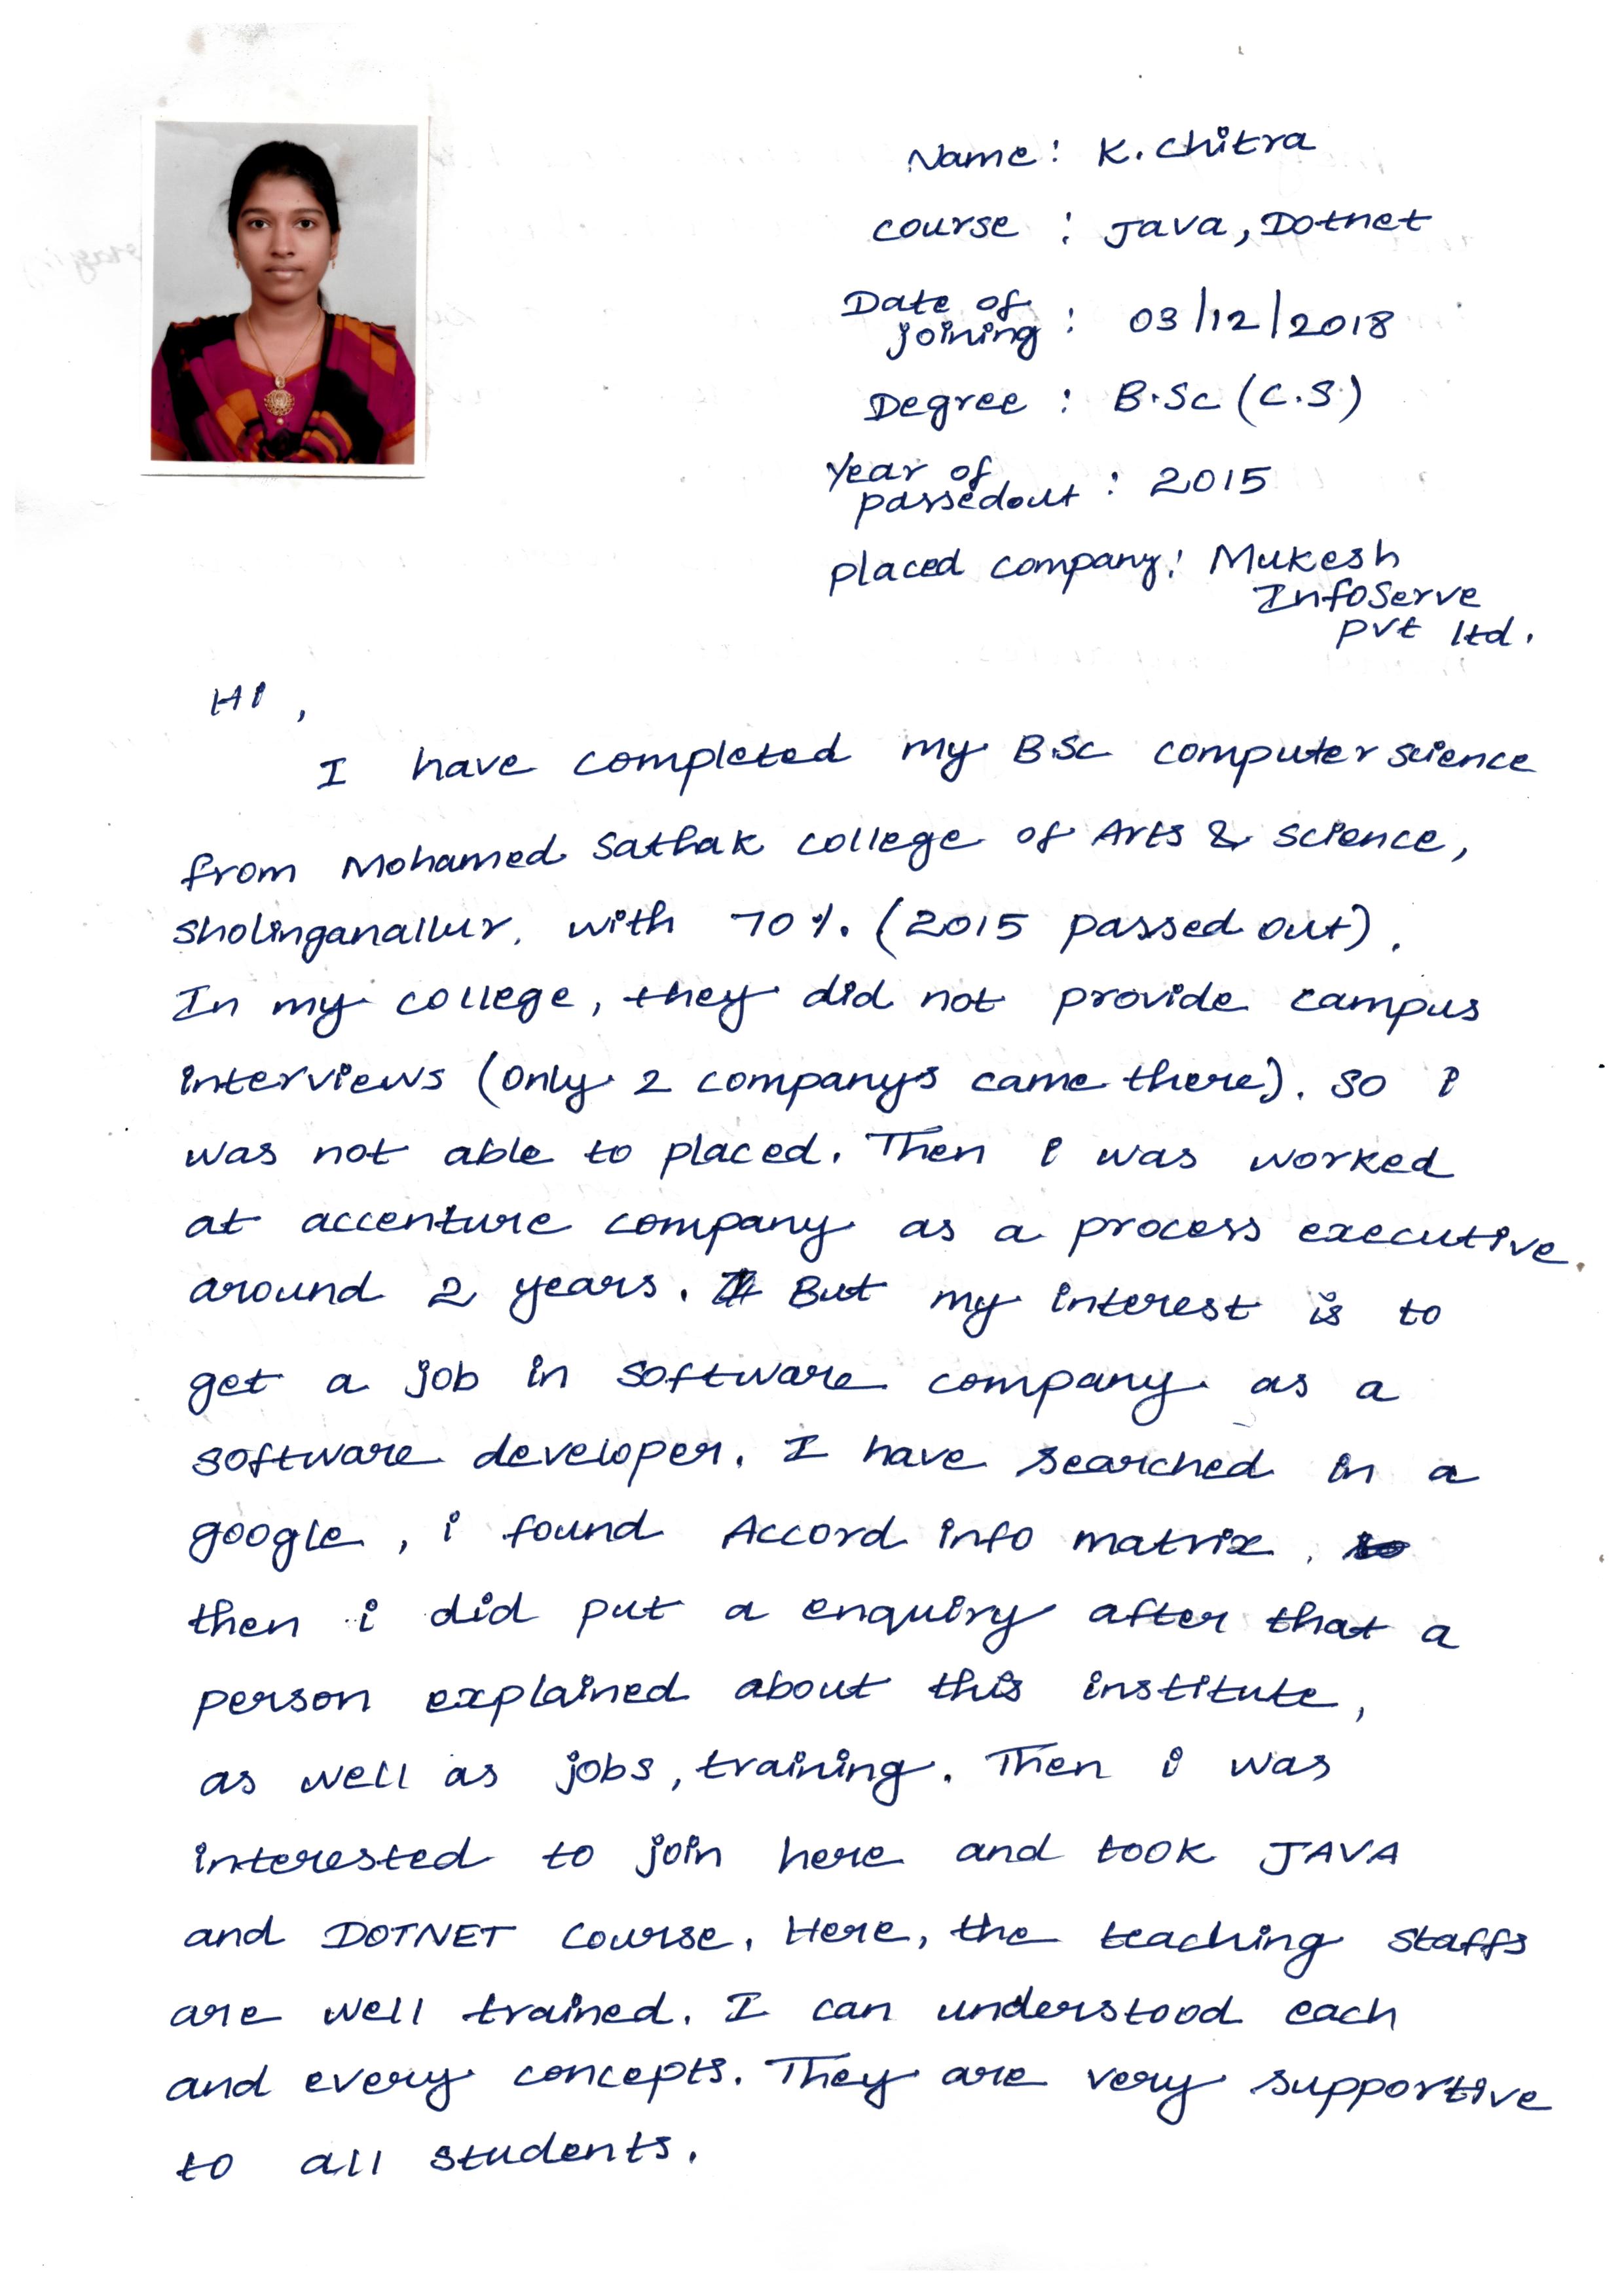 Name : K. Chitra
course : Java, Dotnet
Date of
joining : 03/12/2018
Degree : B.Sc (C.S)
Year of
passedout : 2015
placed company: Mukesh
InfoServe
pvt ltd.
HI,
I have completed my B.Sc computer science
from Mohamed Sathak college of Arts & Science,
Sholinganallur, with 70%. (2015 passed out).
In my college, they did not provide campus
interviews (only 2 companys came there). So I
was not able to placed. Then I was worked
at accenture company as a process executive.
around 2 years. But my interest is to
get a job in software company as a
software developer. I have searched in a
google, i found Accord info matrix. so
then i did put a enquiry after that a
person explained about this institute,
as well as jobs, training. Then i was
interested to join here and took JAVA
and DOTNET course. Here, the teaching staffs
are well trained. I can understood each
and every concepts. They are very supportive
to all students.